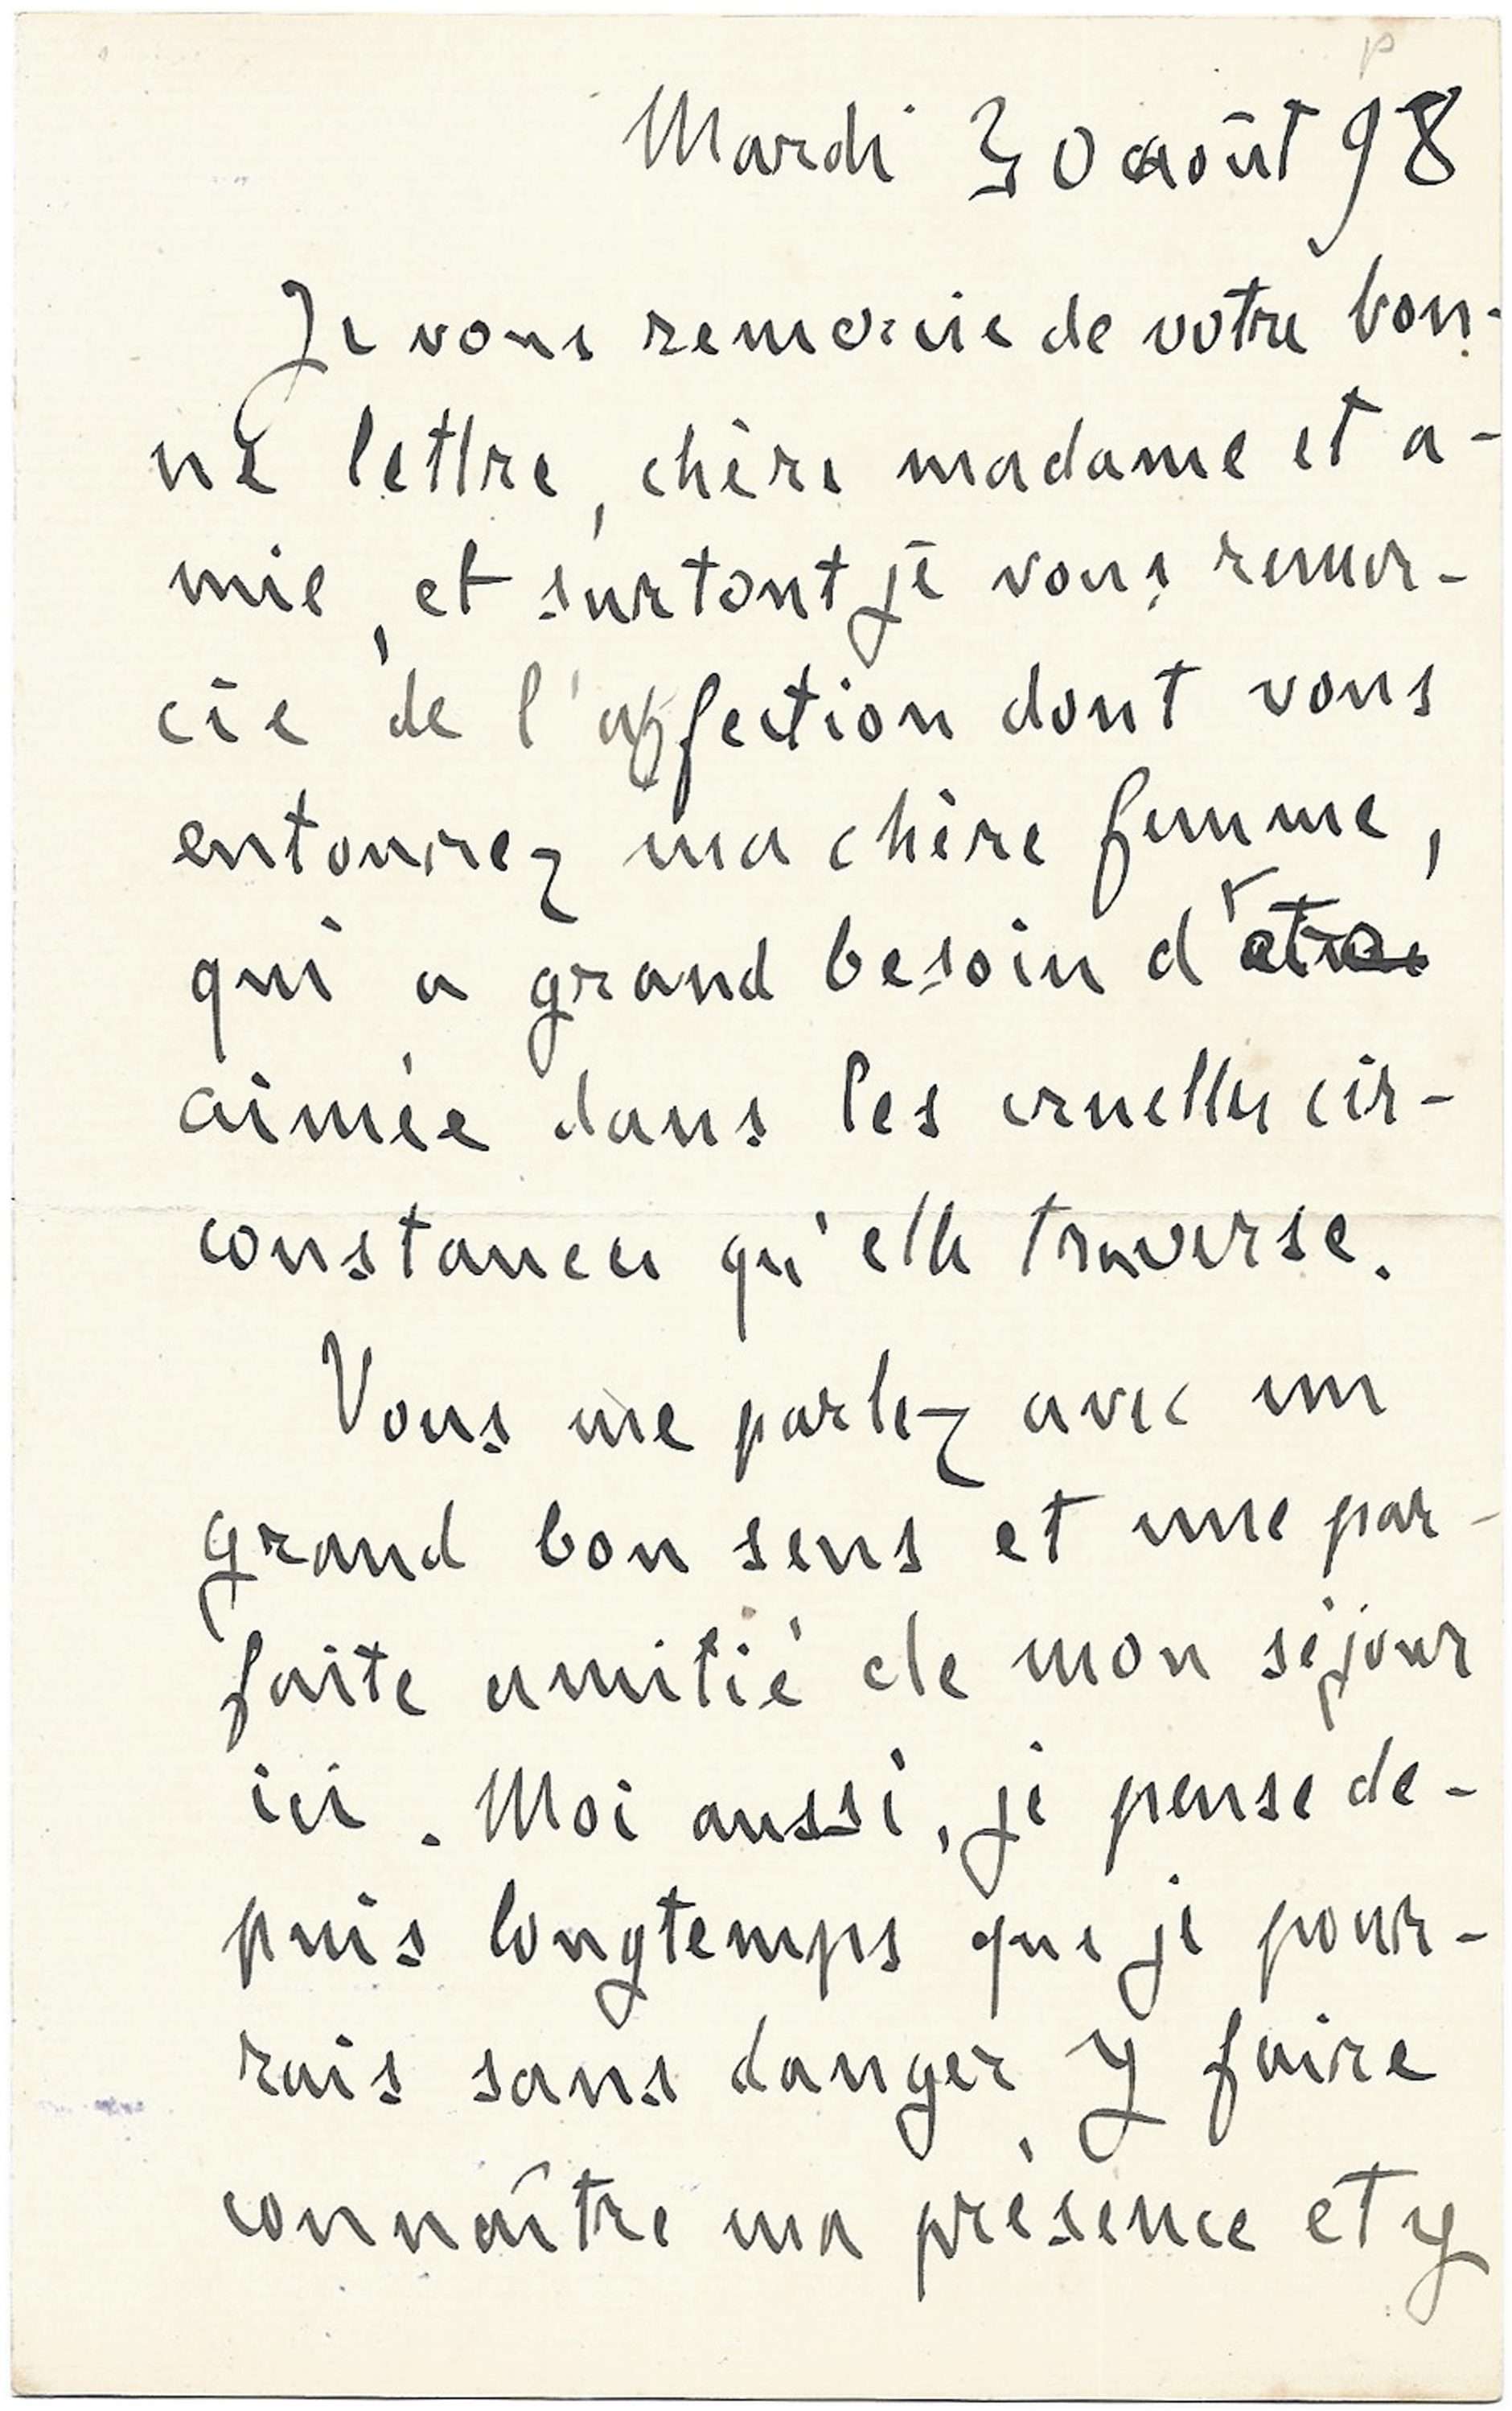 Mardi 30 août 98
Je vous remercie de votre bon-
ne lettre, chère madame et a-
mie, et surtout je vous remer-
cie de l'affection dont vous
entourez ma chère femme,
qui a grand besoin d'être
aimée dans les cruelles cir-
constances qu'elle traverse.
Vous me parlez avec un
grand bon sens et une par-
faite amitié de mon séjour
ici. Moi aussi, je pense de-
puis longtemps que je pour-
rais sans danger y faire
connaître ma présence et y